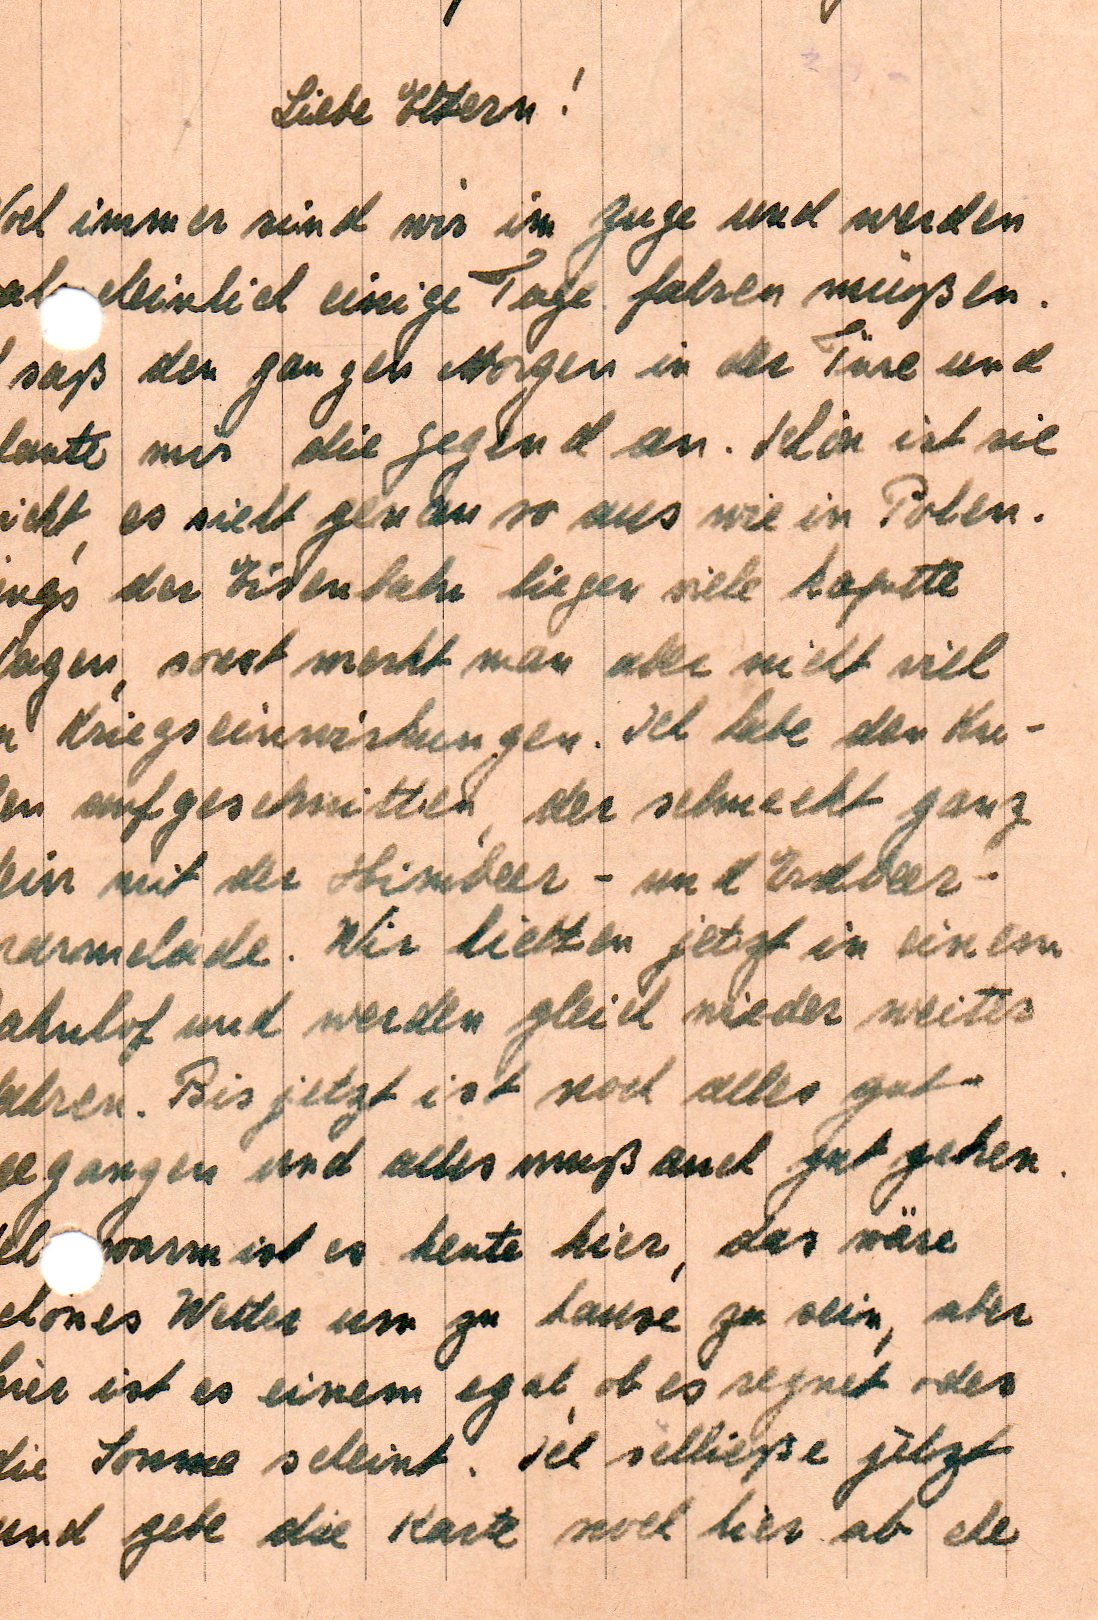 Liebe Eltern!
Noch immer sind wir im Zuge und werden
wahrscheinlich einige Tage fahren müßen.
Ich saß den ganzen Morgen in der Türe und
schaute mir die Gegend an. Schön ist sie
nicht, es sieht genau so aus wie in Polen.
Längs der Eisenbahn liegen viele kaputte
Wagen, sonst merkt man aber nicht viel
von Kriegseinwirkungen. Ich habe den Ku-
chen aufgeschnitten, der schmeckt ganz
fein mit der Himbeer- und Erdbeer-
marmelade. Wir hielten jetzt in einem
Bahnhof und werden gleich wieder weiter
fahren. Bis jetzt ist noch alles gut
gegangen und alles muß auch gut gehen.
warm ist es heute hier, das wäre
schönes Wetter um zu hause zu sein, aber
hier ist es einem egal, ob es regnet oder
die Sonne scheint. Ich schließe jetzt
und gebe die Karte noch hier ab ehe